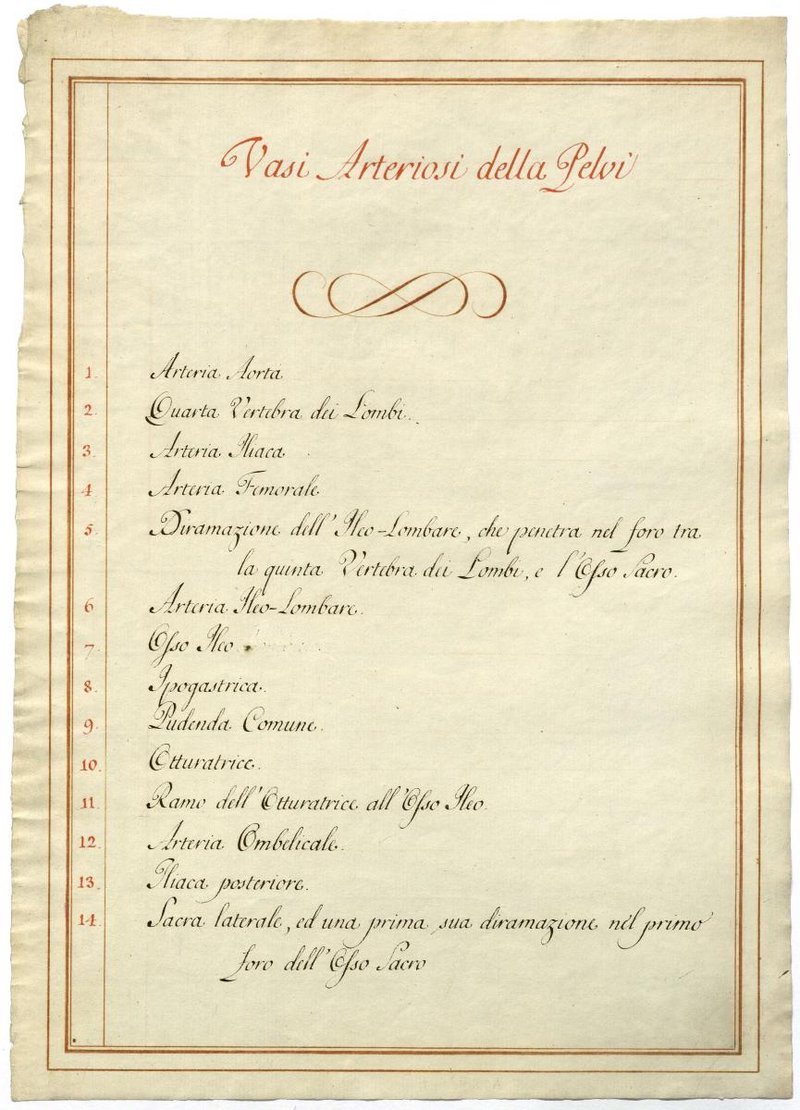 Vasi Arteriosi della Pelvi
1. Arteria Aorta
2. Quarta Vertebra dei Lombi.
3. Arteria Iliaca
4. Arteria Femorale
5. Diramazione dell' Ileo-Lombare, che penetra nel foro tra
la quinta Vertebra dei Lombi, e l'Osso Sacro.
6 Arteria Ileo-Lombare.
7. Osso Ileo
8. Ipogastrica.
9. Pudenda Comune.
10. Otturatrice.
11. Ramo dell'Otturatrice all'Osso Ileo.
12. Arteria Ombelicale.
13. Iliaca posteriore.
14. Sacra laterale, ed una prima sua diramazione nel primo
foro dell'Osso Sacro